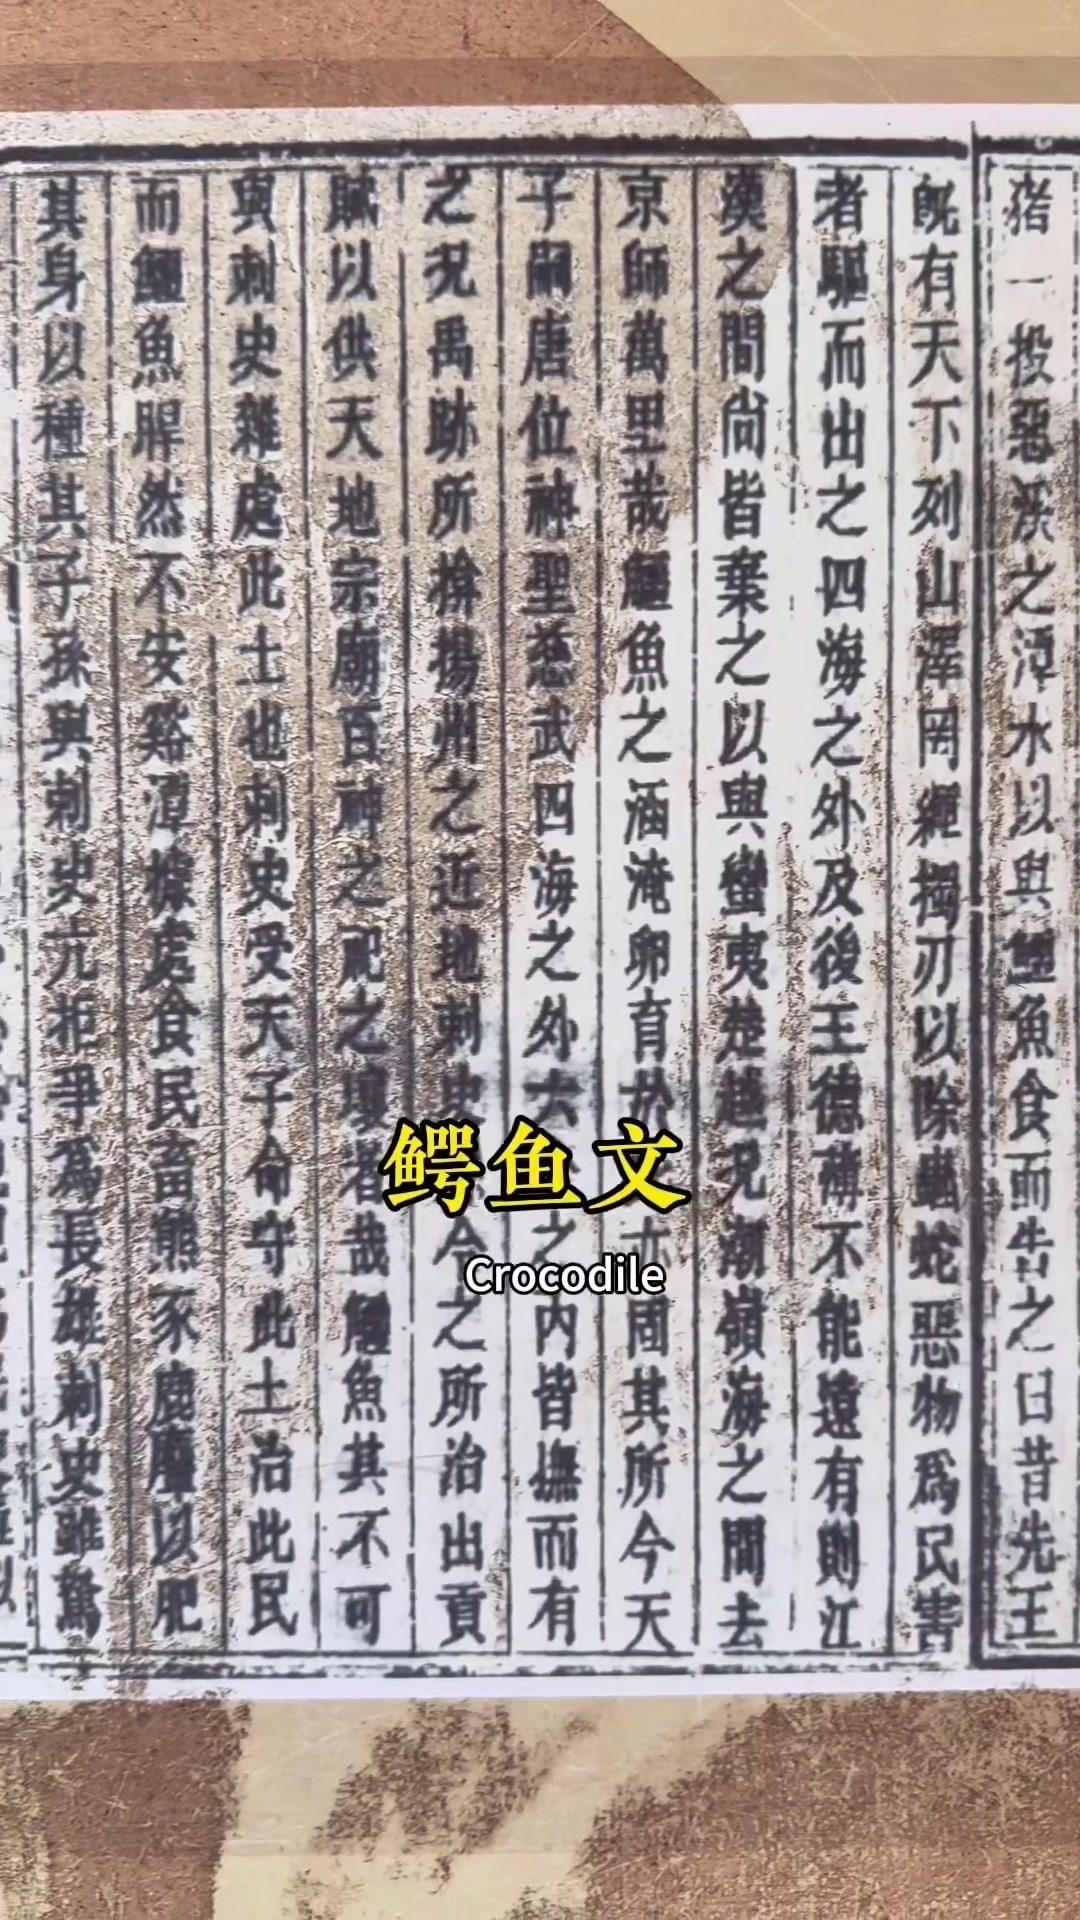 猪一投惡溪之潭水以與鱷魚食而告之曰昔先王
旣有天下列山澤罔繩擉刃以除蟲蛇惡物爲民害
者驅而出之四海之外及後王德薄不能遠有則江
漢之間尚皆棄之以與蠻夷楚越况潮嶺海之間去
京師萬里哉鱷魚之涵淹卵育於亦固其所今天
子嗣唐位神聖慈武四海之外六之内皆撫而有
之况禹跡所揜揚州之近地刺史令之所治出貢
賦以供天地宗廟百神之祀之壤者哉鱷魚其不可
與刺史雜處此土也刺史受天子命守此土治此民
而鱷魚睅然不安谿潭據處食民畜熊豕鹿麞以肥
其身以種其子孫與刺史亢拒爭爲長雄刺史雖駑
鳄鱼文
Crocodile